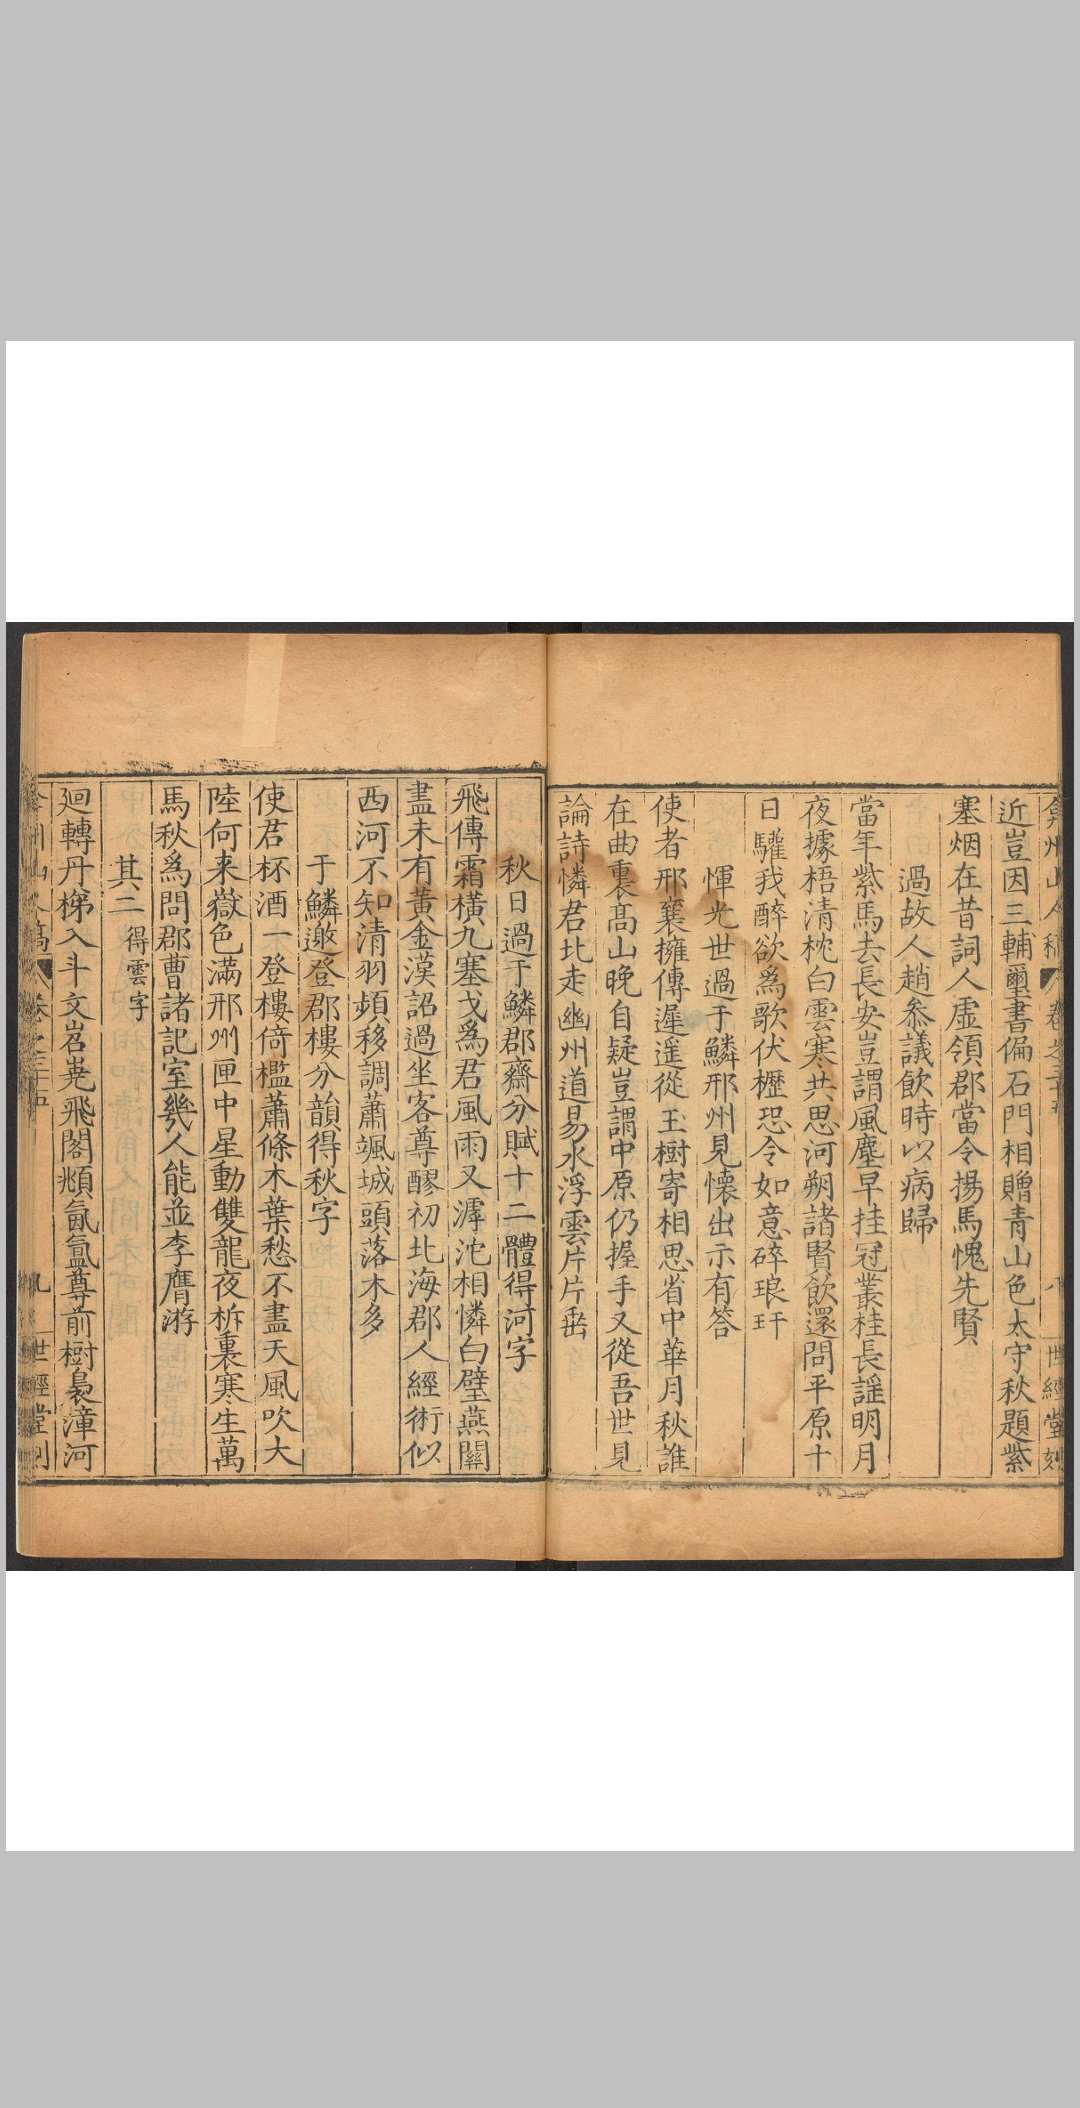 弇州山人稿 卷之三十五 八 世經堂刻
近豈因三輔璽書偏石門相贈青山色太守秋題紫
塞烟在昔詞人虛領郡當令揚馬愧先賢
過故人趙叅議飲時以病歸
當年紫馬去長安豈謂風塵早挂冠叢桂長謡明月
夜據梧清枕白雲寒共思河朔諸賢飲還問平原十
日驩我醉欲爲歌伏櫪恐令如意碎琅玕
惲光世過于鱗邢州見懐出示有答
使者邢襄擁傳遲遥從玉樹寄相思省中華月秋誰
在曲裏髙山晚自疑豈謂中原仍握手又從吾世見
論詩憐君北走幽州道易水浮雲片片𡸁
秋日過于鱗郡齋分賦十二體得河字
飛傳霜横九塞戈爲君風雨又滹沱相憐白璧燕關
盡未有黄金漢詔過坐客尊醪初北海郡人經術似
西河不知清羽頻移調蕭颯城頭落木多
于鱗邀登郡樓分韻得秋字
使君杯酒一登樓倚檻蕭條木葉愁不盡天風吹大
陸何来嶽色滿邢州匣中星動雙龍夜柝裏寒生萬
馬秋爲問郡曹諸記室幾人能並李膺游
其二 得雲字
廻轉丹梯入斗文岧嶤飛閣頫氤氳尊前樹裊漳河
山人稿 卷之三十五 九 世經堂刻